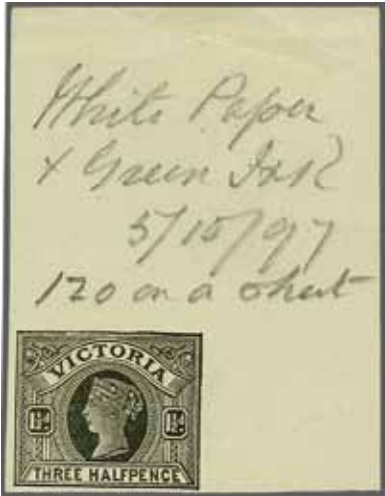 White Paper
& Green Ink
5/10/97
120 on a sheet
VICTORIA
1½ᴰ 1½ᴰ
THREE HALFPENCE